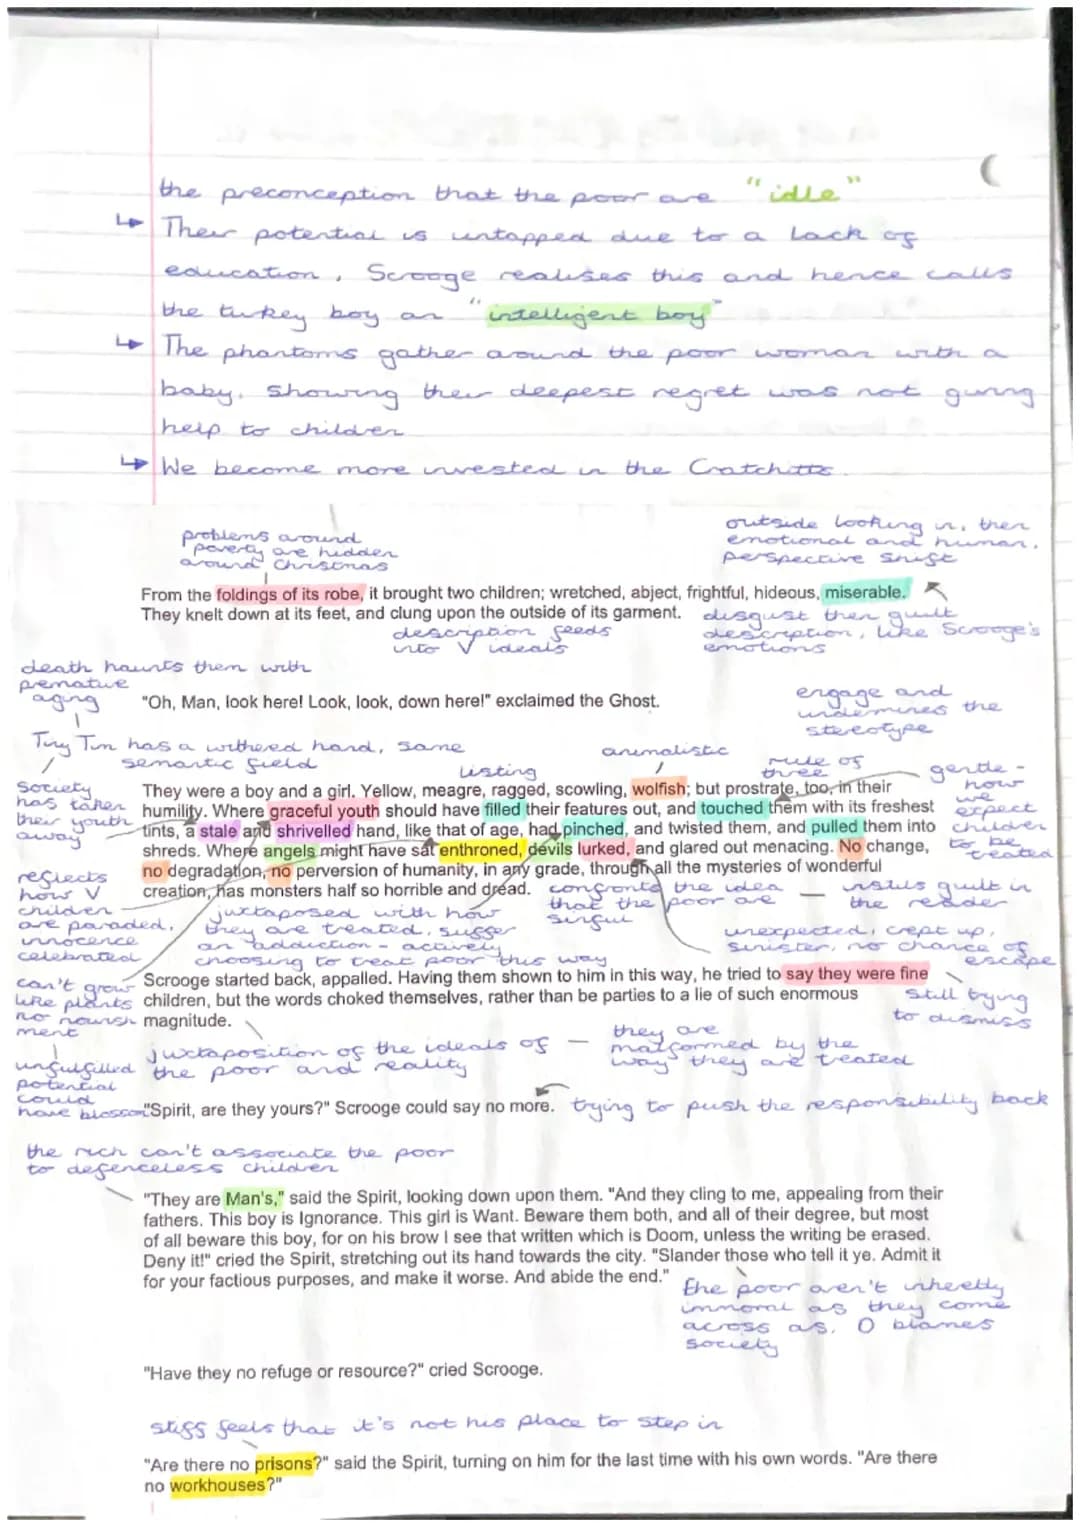 the preconception that the poor are "idle"
↳ Their potential is untapped due to a lack of
education, Scrooge realises this and hence calls
the turkey boy an "intelligent boy"
↳ The phantoms gather around the poor woman with a
baby, showing their deepest regret was not giving
help to children
↳ We become more invested in the Cratchitts.
problems around
poverty are hidden
around Christmas
outside looking in, then
emotional and human,
perspective shift
From the foldings of its robe, it brought two children; wretched, abject, frightful, hideous, miserable.
They knelt down at its feet, and clung upon the outside of its garment.
disgust then guilt
description, like Scrooge's
emotions
description feeds
into V ideals
death haunts them with
premature
aging
"Oh, Man, look here! Look, look, down here!" exclaimed the Ghost.
engage and
undermines the
stereotype
Tiny Tim has a withered hand, same
semantic field
listing
animalistic
rule of
three
gentle -
how
we
expect
children
to be
treated
society
has taken
their youth
away
They were a boy and a girl. Yellow, meagre, ragged, scowling, wolfish; but prostrate, too, in their
humility. Where graceful youth should have filled their features out, and touched them with its freshest
tints, a stale and shrivelled hand, like that of age, had pinched, and twisted them, and pulled them into
shreds. Where angels might have sat enthroned, devils lurked, and glared out menacing. No change,
no degradation, no perversion of humanity, in any grade, through all the mysteries of wonderful
creation, has monsters half so horrible and dread.
reflects
how V
children
are paraded,
innocence
celebrated
confronts the idea
that the poor are
sinful
— instils guilt in
the reader
juxtaposed with how
they are treated, suffer
an addiction - actively
choosing to treat poor this way
unexpected, crept up,
sinister, no chance of
escape
can't grow
like plants
no nourish
ment
Scrooge started back, appalled. Having them shown to him in this way, he tried to say they were fine
children, but the words choked themselves, rather than be parties to a lie of such enormous
magnitude.
still trying
to dismiss
unfulfilled
potential
could
have blossom
juxtaposition of the ideals of —
the poor and reality
they are
malformed by the
way they are treated
"Spirit, are they yours?" Scrooge could say no more.
trying to push the responsibility back
the rich can't associate the poor
to defenceless children
"They are Man's," said the Spirit, looking down upon them. "And they cling to me, appealing from their
fathers. This boy is Ignorance. This girl is Want. Beware them both, and all of their degree, but most
of all beware this boy, for on his brow I see that written which is Doom, unless the writing be erased.
Deny it!" cried the Spirit, stretching out its hand towards the city. "Slander those who tell it ye. Admit it
for your factious purposes, and make it worse. And abide the end."
the poor aren't inherettly
immoral as they come
across as. D blames
society
"Have they no refuge or resource?" cried Scrooge.
still feels that it's not his place to step in
"Are there no prisons?" said the Spirit, turning on him for the last time with his own words. "Are there
no workhouses?"